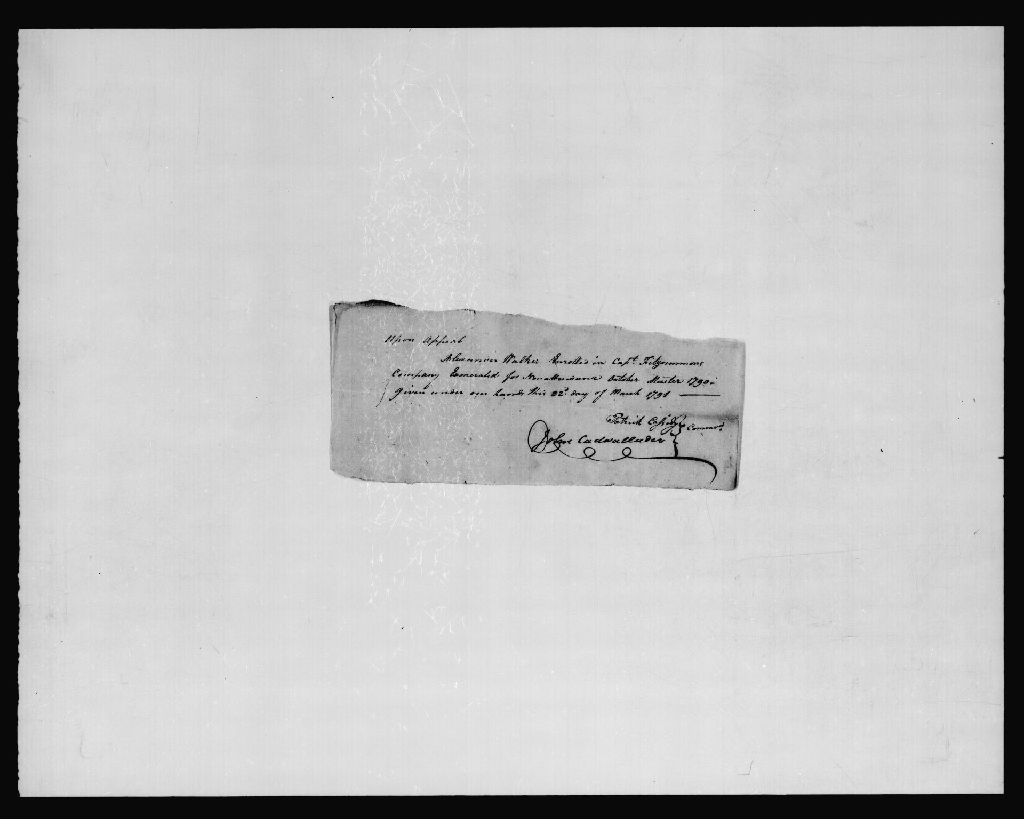 Upon Appeal
Alexander Walker Enrolled in Capt. Fitzsimmons
Company Exonerated for Nonattendance October Muster 1790
Given under our hands this 22d. day of March 1791
Patrick Cassidy
John Cadwallader } Commrs.